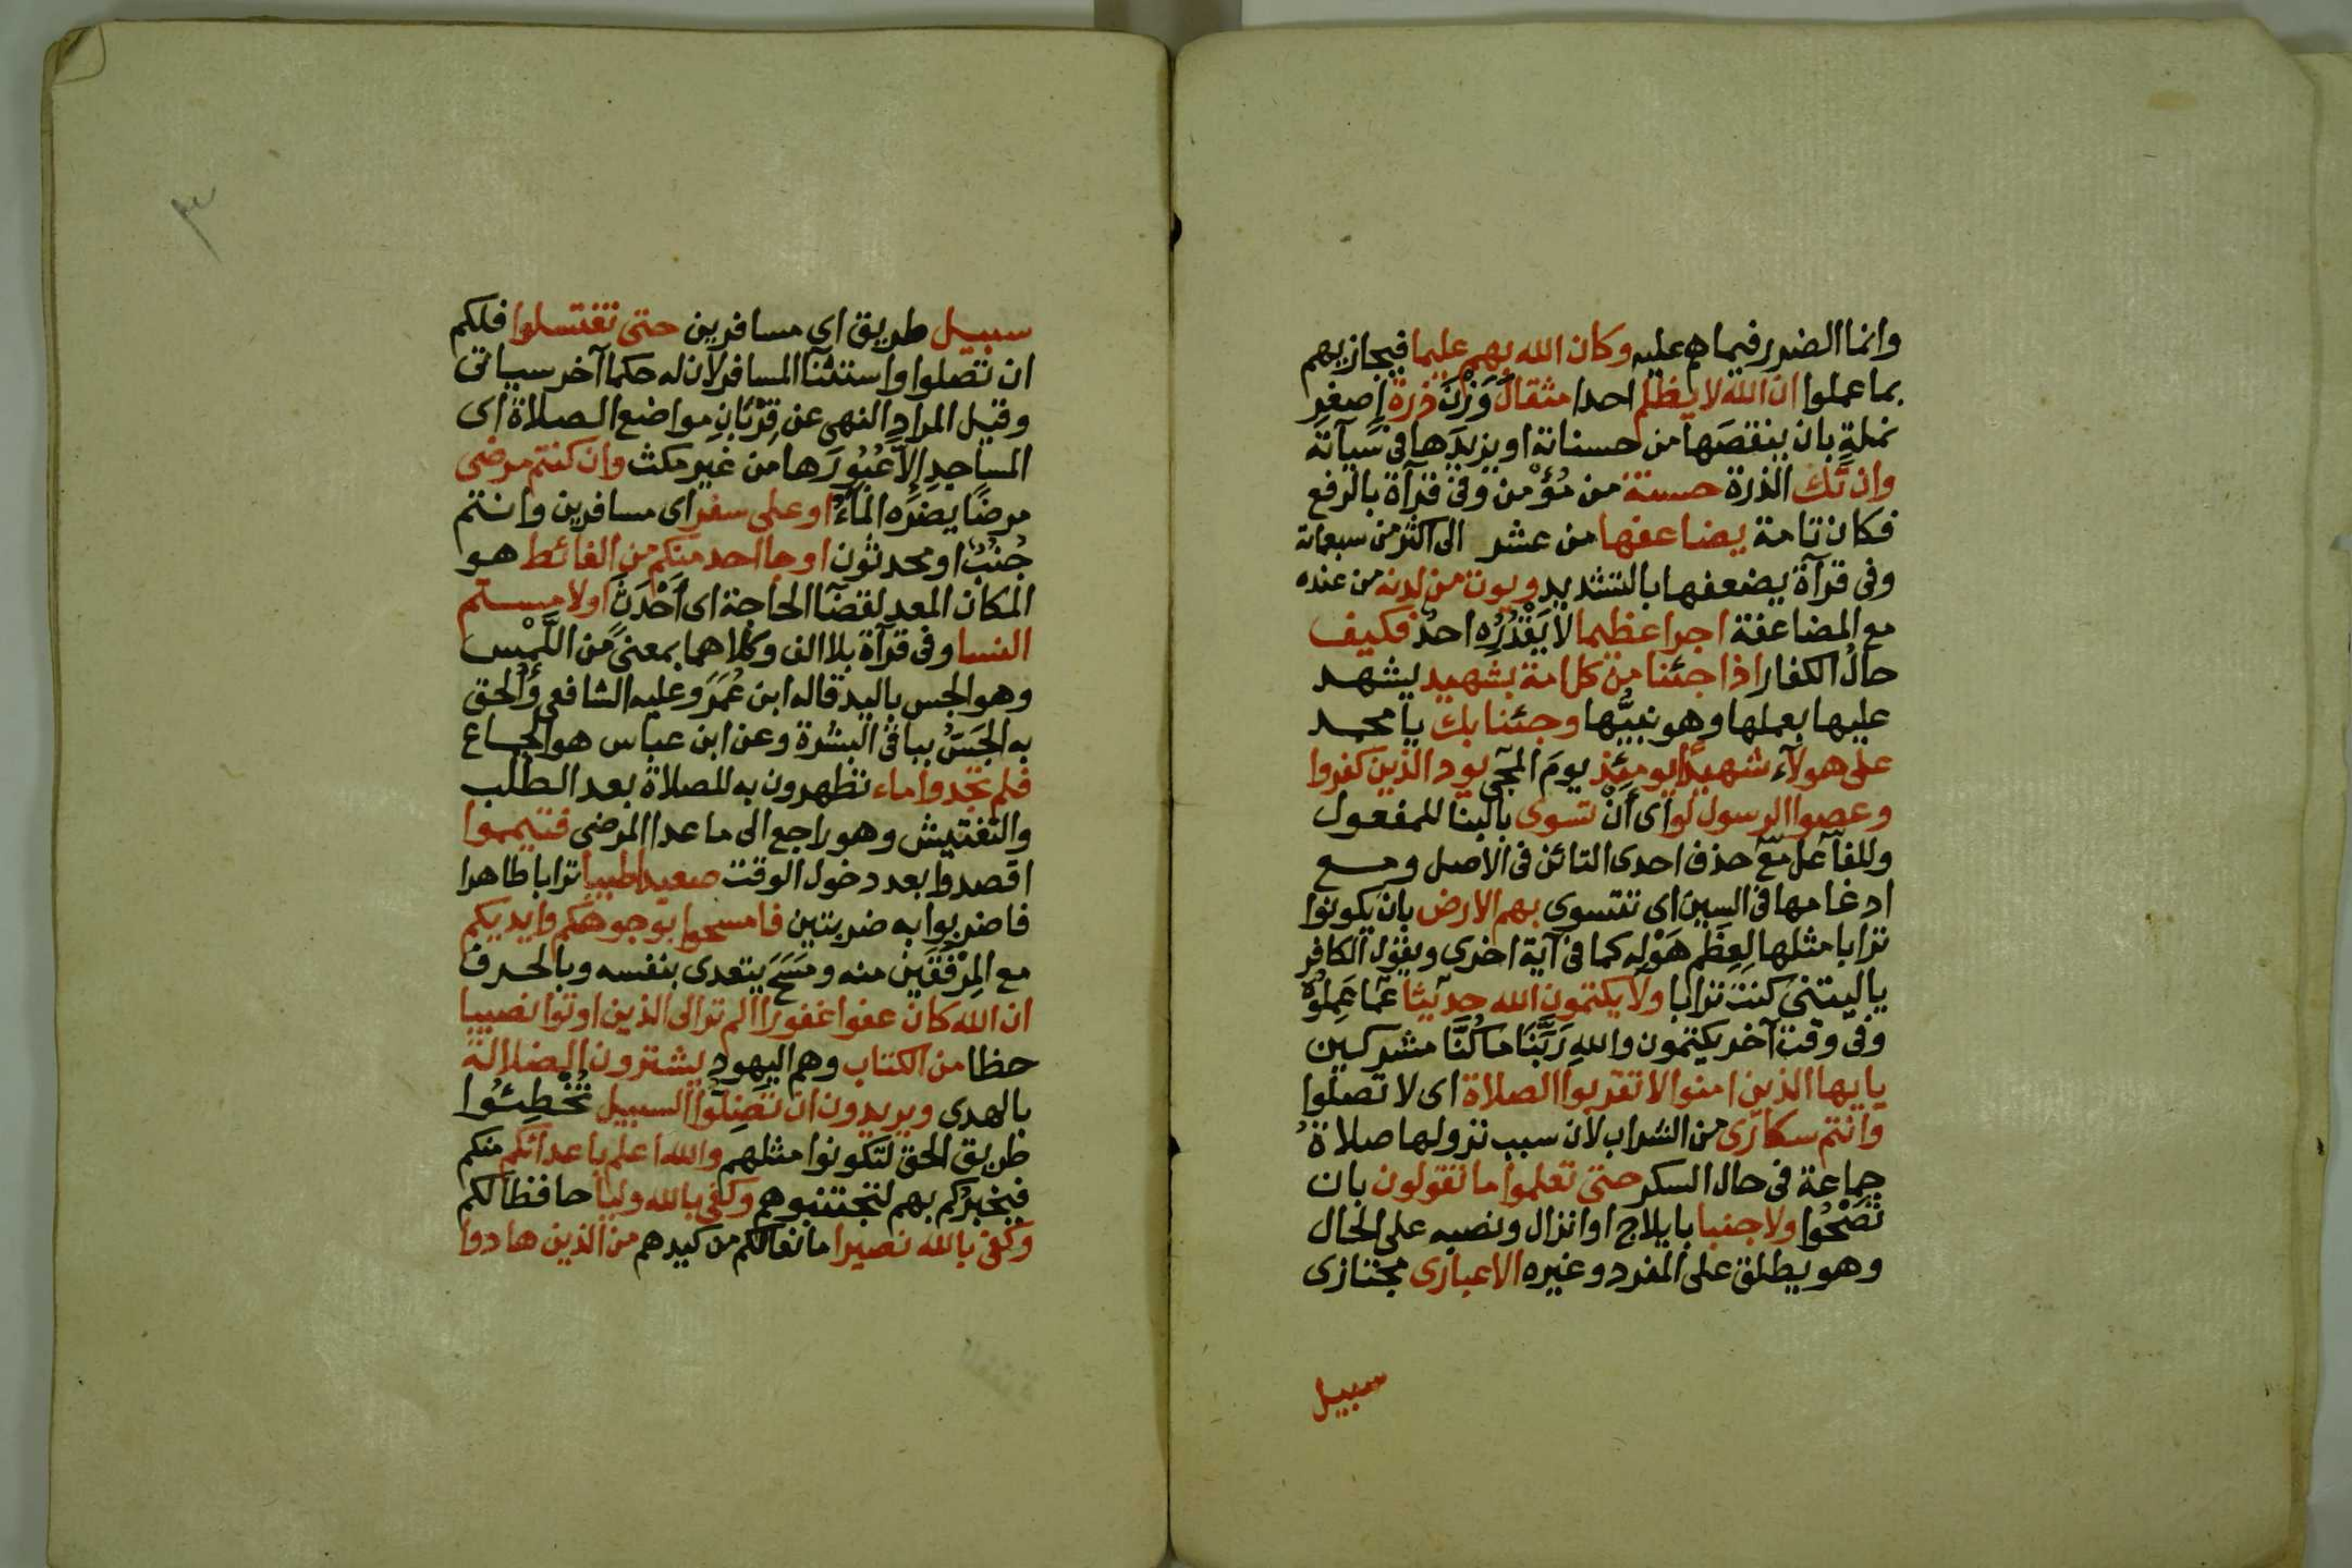 وانما الضرر فيما هم عليه وكان الله بهم عليما فيجازيهم
بما عملوا ان الله لا يظلم احدا مثقال وَزْنَ ذرة اصغرِ
نملةٍ بان ينقصَها من حسناته او يزيدَها في سيآته
وان تك الذرة حسنة من مُؤْمن وفي قرآة بالرفع
فكان تامة يضاعفها من عشر الى اكثر من سبعمائة
وفي قرآة يضعفها بالتشديد ويوت من لدنه من عنده
مع المضاعفة اجرا عظيما لا يَقْدُرُه احدٌ فكيف
حالُ الكفار اذا جئنا من كل امة بشهيد يشهد
عليها بعملها وهو نبيُّها وجئنا بك يا محمد
على هولآء شهيدًا يومئِذٍ يومَ المجئ يود الذين كفروا
وعصوا الرسول لو اى أَنْ تسوى بالبنا للمفعول
وللفآعل مع حذف احدى التائن في الاصل ومع
ادغامها في السين اى تتسوى بهم الارض بان يكونوا
ترابا مثلها لِعِظَمِ هَوْلِه كما في آية اخرى ويقول الكافر
ياليتنى كنت ترابا ولا يكتمون الله حديثا عمّا عَمِلُوهُ
وفي وقت آخر يكتمون واللهِ رَبِّنَا ما كُنَّا مشركين
يايها الذين امنوا لا تقربوا الصلاة اى لا تصلوا
وانتم سكارى من الشراب لان سبب نزولها صلاةُ
جماعة في حال السكر حتى تعلموا ما تقولون بان
تَصْحُوا ولا جنبا بايلاج او انزال ونصبه على الحال
وهو يطلق على المفرد وغيره الا عبارى مجتازى
سبيل
٣
سبيل طريق اى مسافرين حتى تغتسلوا فلكم
ان تصلوا واستثنآ المسافر لان له حكما آخر سياتى
وقيل المراد النهى عن قِرْبَانِ مواضع الصلاة اى
المساجدِ إلاَّ عُبُورَها من غير مكث وان كنتم مرضى
مرضًا يضره المآءُ او على سفر اى مسافرين وانتم
جُنُبٌ او محدثون او جا احد منكم من الغائط هو
المكان المعد لقضآ الحاجة اى أَحْدَثَ اولامستم
النسا وفى قرآة بلا الف وكلاهما بمعنىً من اللَّمْس
وهو الجس باليد قاله ابن عُمَرَ وعليه الشافعى وأُلحق
به الجَسُّ بباقى البشرة وعن ابن عباس هو الجماع
فلم تجدوا ماء تطهرون به للصلاة بعد الطلب
والتفتيش وهو راجع الى ما عدا المرضى فتيمموا
اقصدوا بعد دخول الوقت صعيدا طيبا ترابا طاهرا
فاضربوا به ضربتين فامسحوا بوجوهكم وايديكم
مع المِرْفَقَيْن منه ومَسَحَ يتعدى بنفسه وبالحرف
ان الله كان عفوا غفورا الم تر الى الذين اوتوا نصيبا
حظا من الكتاب وهم اليهود يشترون الضلالة
بالهدى ويريدون ان تَضِلُّوا السبيل تُخْطِئُوا
طريق الحق لتكونوا مثلهم والله اعلم باعدائكم منكم
فيخبرُكم بهم لتجتنبوهم وكفى بالله وليا حافظا لكم
وكفى بالله نصيرا مانعا لكم من كيدهم من الذين هادوا